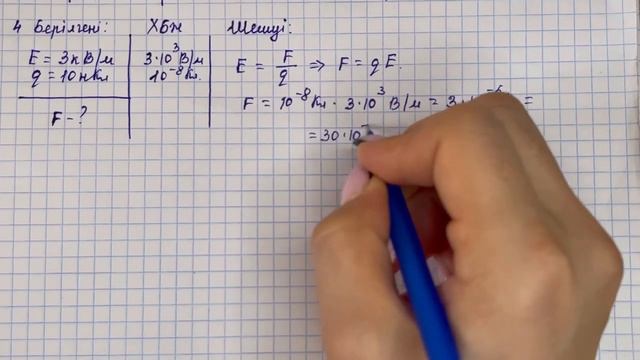 4 Берілгені: ХБЖ Шешуі:
E = 3кВ/м 3·10³В/м E = F/q ⇒ F = qE.
q = 10нКл 10⁻⁸Кл.
F - ? F = 10⁻⁸Кл · 3·10³ В/м = 3·
= 30·10